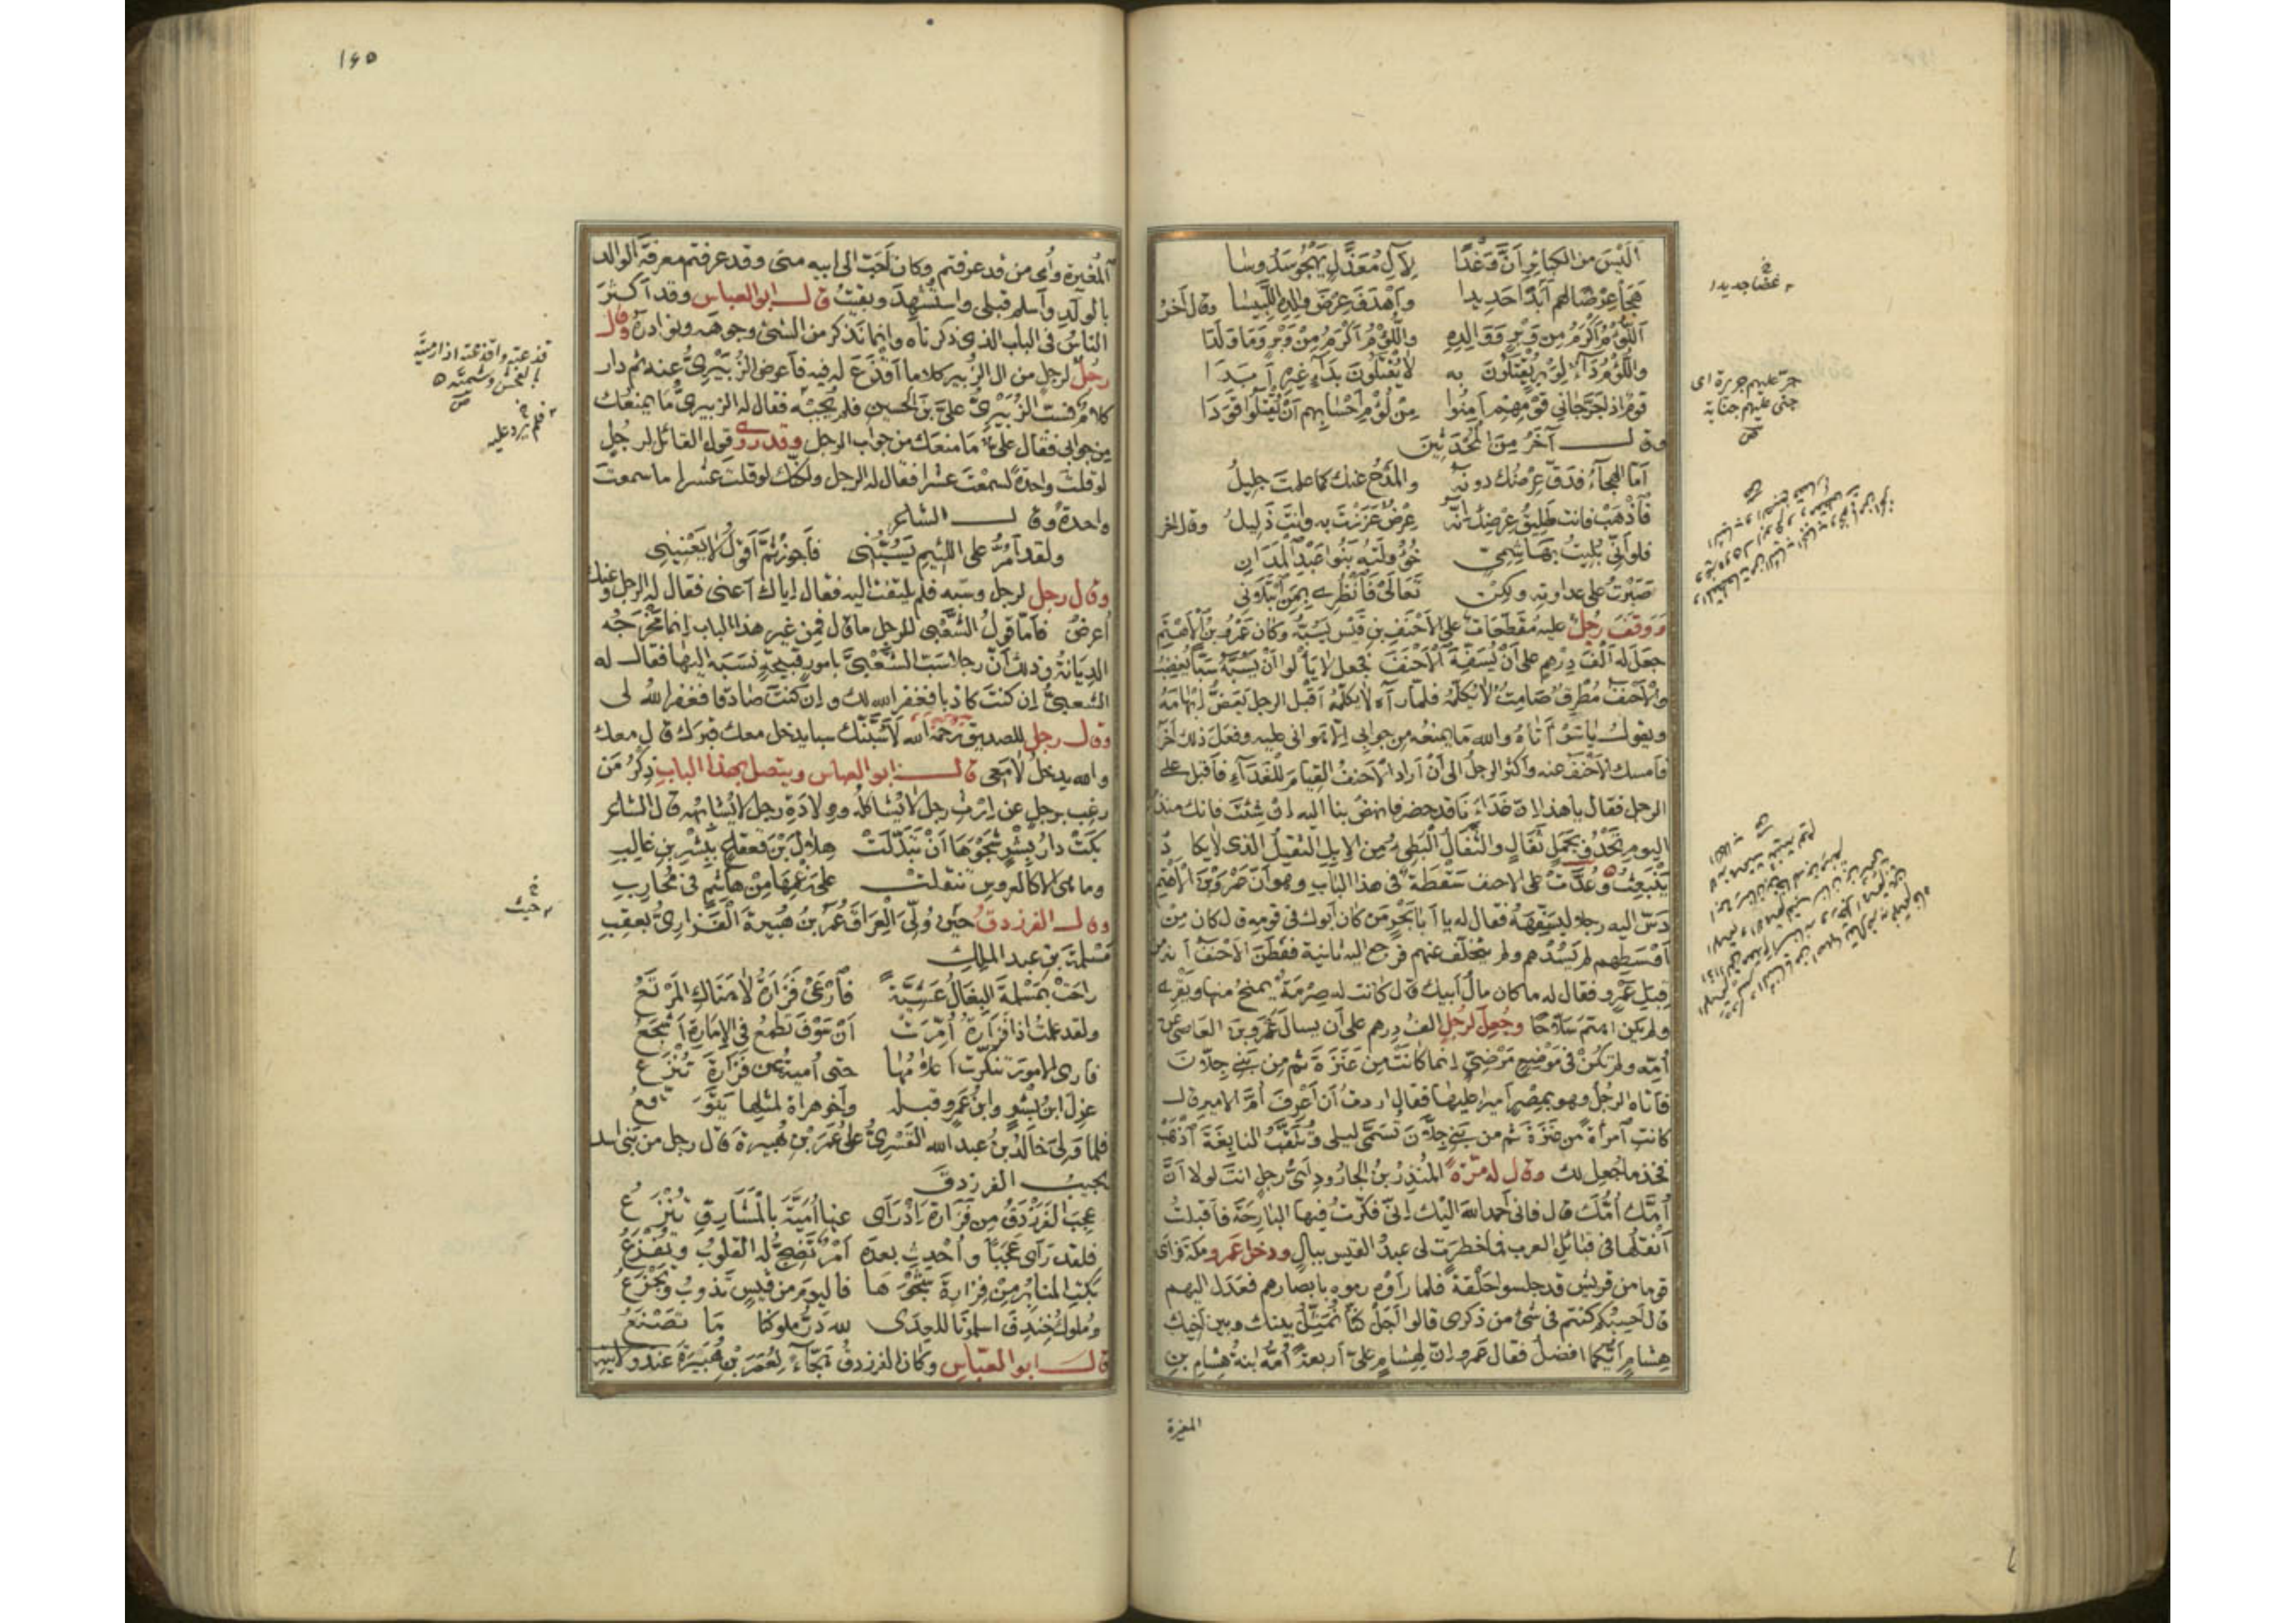 أليس من الكبائر أن وغدا لآل معذل يهجو سدوسا
هجا عرضا لهم أبدا جديدا وأهدف عرض والده اللبيسا وقال آخر
اللؤم أكرم من وبر ووالده واللؤم أكرم من وبر وما ولدا
واللؤم داء لوبر يقتلون به لا يقتلون بداء غيره أبدا
قوم إذا جر جاني قومهم أمنوا من لؤم أحسابهم أن يقتلوا قودا
وقال آخر من المحدثين
أما الهجاء فدق عرضك دونه والمدح عنك كما علمت جليل
فاذهب فأنت طليق عرضك إنه عرض عززت به وأنت ذليل وقال آخر
فلو أني بليت بهاشمي خؤولته بنو عبد المدان
صبرت على عداوته ولكن تعالي فانظري بمن ابتلاني
ووقف رجل عليه مقطعات على الأحنف بن قيس يسبه وكان عمرو بن الأهتم
جعل له ألف درهم على أن يسفه الأحنف فجعل لا يألو أن يسبه سبا يغضب
والأحنف مطرق صامت لا يكلمه فلما رآه لا يكلمه أقبل الرجل يعض إبهامه
ويقول يا سوأتاه والله ما يمنعه من جوابي إلا هواني عليه وفعل ذلك آخر
فأمسك الأحنف عنه وأكثر الرجل إلى أن أراد الأحنف القيام للغداء فأقبل على
الرجل فقال يا هذا إن غداءنا قد حضر فانهض بنا إليه إن شئت فإنك منذ
اليوم تحدو بجمل ثفال والثفال البطيء من الإبل الثقيل الذي لا يكاد
ينبعث وعدت على الأحنف سقطة في هذا الباب وهو أن عمرو بن الأهتم
دس إليه رجلا ليسفهه فقال له يا أبا بحر من كان أبوك في قومه قال كان من
أوسطهم لم يسدهم ولم يتخلف عنهم فرجع إليه ثانية ففطن الأحنف أنه من
قبل عمرو فقال له ما كان مال أبيك قال كانت له صرمة يمنح منها ويقري
ولم يكن اهتم سلاحا وجعل لرجل ألف درهم على أن يسأل عمرو بن العاصي عن
أمه ولم تكن في موضع مرضي إنما كانت من عنزة ثم من بني جلان
فأتاه الرجل وهو بمصر أميرا عليها فقال أردت أن أعرف أم الأمير قال
كانت امرأة من عنزة ثم من بني جلان تسمى ليلى وتلقب النابغة اذهب
فخذ ما جعل لك وقال له مرة المنذر بن الجارود أي رجل أنت لولا أن
أمك أمك قال فاني أحمد الله إليك إني فكرت فيها البارحة فأقبلت
أنقلها في قبائل العرب فما خطرت لي عبد القيس ببال ودخل عمرو مكة فرأى
قوما من قريش قد جلسوا حلقة فلما رأوه رموه بأبصارهم فعدل إليهم
قال أحسبكم كنتم في شيء من ذكري قالوا أجل كنا نمثل بينك وبين أخيك
هشام أيكما أفضل فقال عمرو إن لهشام علي أربعة أمه ابنة هشام بن
المغيرة
جر عليهم جريرة أي
جنى عليهم جناية
١٤٥
المغيرة وأمي من قد عرفتم وكان أحب إلى أبيه مني وقد عرفتم معرفة الوالد
بالولد وأسلم قبلي واستشهد وبقيت قال أبو العباس وقد أكثر
الناس في الباب الذي ذكرناه وإنما نذكر من الشيء وجوهه ونوادره وقال
رجل لرجل من آل الزبير كلاما أقذع له فيه فأعرض الزبيري عنه ثم دار
كلام فسب الزبيري علي بن الحسين فلم يجبه فقال له الزبيري ما يمنعك
من جوابي فقال علي ما منعك من جواب الرجل وقد روي قول القائل لرجل
لو قلت واحدة لسمعت عشرا فقال له الرجل ولكنك لو قلت عشرا ما سمعت
واحدة وقال الشاعر
ولقد أمر على اللئيم يسبني فأجوز ثم أقول لا يعنيني
وقال رجل لرجل وسبه فلم يلتفت إليه فقال إياك أعني فقال له الرجل وعنك
أعرض فأما قول الشعبي للرجل ما قال فمن غير هذا الباب إنما مخرجه
الديانة وذلك أن رجلا سب الشعبي بأمور قبيحة نسبه إليها فقال له
الشعبي إن كنت كاذبا فغفر الله لك وإن كنت صادقا فغفر الله لي
وقال رجل للصديق رحمه الله لأسبنك سبا يدخل معك قبرك قال معك
والله يدخل لا معي قال أبو العباس ويتصل بهذا الباب ذكر من
رغب برجل عن إرث رجل لا يشاكله وولادة رجل لا يشابهه قال الشاعر
بكت دار بشر شجوها أن تبدلت هلال بن قعقاع ببشر بن غالب
وما هي إلا كالعروس تنقلت على رغمها من هاشم في محارب
وقال الفرزدق حين ولي العراق عمر بن هبيرة الفزاري بعقب
مسلمة بن عبد الملك
راحت بمسلمة البغال عشية فارعي فزارة لا هناك المرتع
ولقد علمت إذا فزارة أمرت أن سوف تطمع في الإمارة أشجع
فأرى الأمور تنكرت أعلامها حتى أمية عن فزارة تنزع
عزل ابن بشر وابن عمرو قبله وأخو هراة لمثلها يتوقع
فلما ولي خالد بن عبد الله القسري على عمر بن هبيرة قال رجل من بني أسد
يجيب الفرزدق
عجب الفرزدق من فزارة إذ رأى عنها أمية بالمشارق تنزع
فلقد رأى عجبا وأحدث بعده أمر تضج له القلوب وتفزع
بكت المنابر من فزارة شجوها فاليوم من قيس تذوب وتجزع
وملوك خندف أسلمونا للعدى لله در ملوكنا ما تصنع
قال أبو العباس وكان الفرزدق هجاء لعمر بن هبيرة عند ولايته
قذعته وأقذعته إذا رميته
بالفحش وشتمته
فلم يرد عليه
حيث